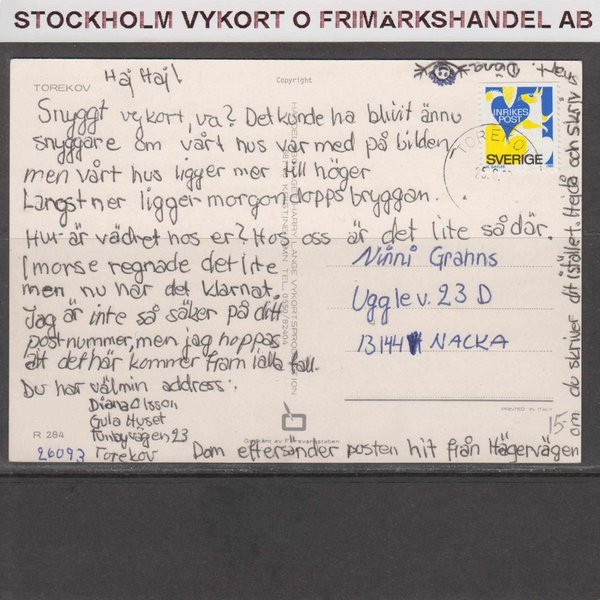 STOCKHOLM VYKORT O FRIMÄRKSHANDEL AB
TOREKOV
Copyright
Haj Haj!
Snyggt vykort, va? Det kunde ha blivit ännu
snyggare om vårt hus var med på bilden
men vårt hus ligger mer till höger
Längst ner ligger morgondoppsbryggan.
Hur är vädret hos er? Hos oss är det lite sådär.
I morse regnade det lite
men nu har det klarnat.
Jag är inte så säker på ditt
postnummer, men jag hoppas
att det här kommer fram i alla fall.
Du har väl min address:
Diana Olsson
Gula Huset
23
26093 Torekov
Dom eftersänder posten hit från Hägervägen
om du skriver dit istället. Hejdå och skriv
Diana
INRIKES
POST
SVERIGE
TOREKOV
Ninni Grahns
Uggle v. 23 D
13144 NACKA
PRINTED IN ITALY
15-
R 284